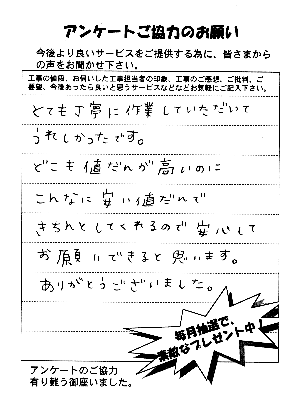 アンケートご協力のお願い
今後より良いサービスをご提供する為に、皆さまから
の声をお聞かせ下さい。
工事の値段、お伺いした工事担当者の印象、工事のご感想、ご批判、ご
要望、今後あったら良いと思うサービスなどなどお気軽にご記入下さい。
とても丁寧に作業していただいて
うれしかったです。
どこも値だんが高いのに
こんなに安い値だんで
きちんとしてくれるので安心して
お願いできると思います。
ありがとうございました。
毎月抽選で、
素敵なプレゼント中!
アンケートのご協力
有り難う御座いました。